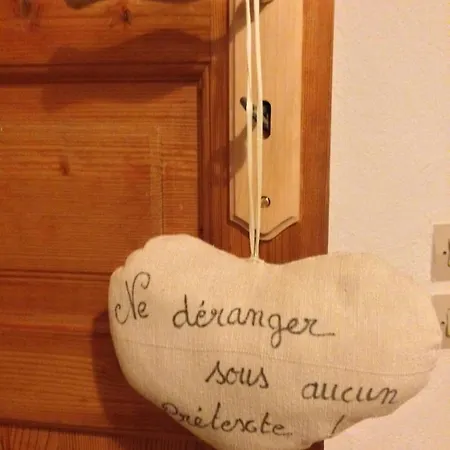 Ne déranger
sous aucun
Prétexte !